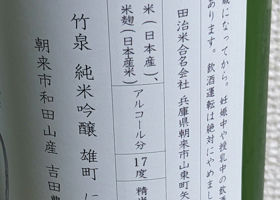 歳になってから。妊娠中や授乳中の飲酒
あります。飲酒運転は絶対にやめまし
田治米合名会社 兵庫県朝来市山東町矢
米(日本産)、
米麹(日本産米)
アルコール分
17度
精米
竹泉 純米吟醸 雄町
朝来市和田山産 吉田